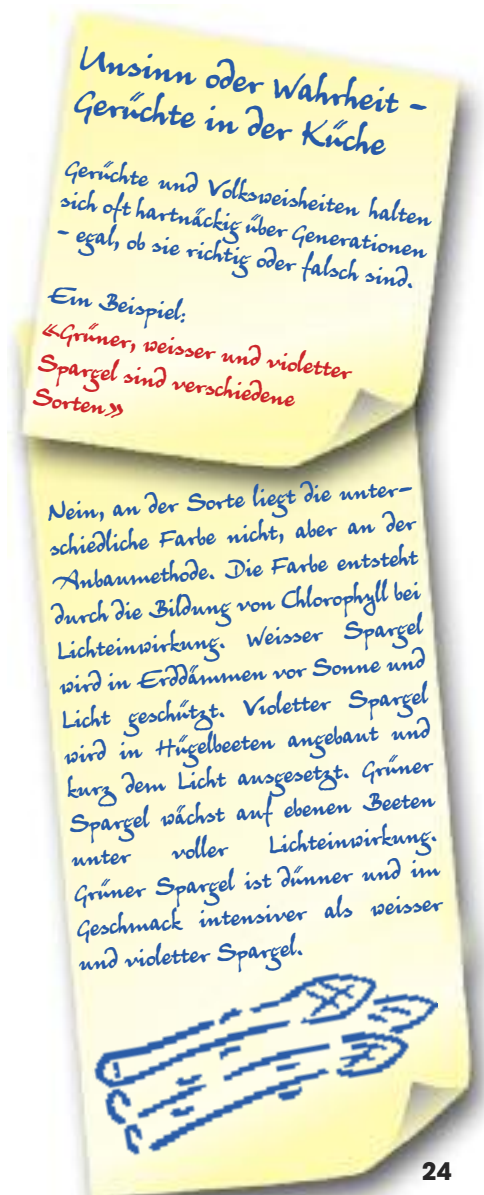 Unsinn oder Wahrheit –
Gerüchte in der Küche
Gerüchte und Volksweisheiten halten
sich oft hartnäckig über Generationen
– egal, ob sie richtig oder falsch sind.
Ein Beispiel:
«Grüner, weisser und violetter
Spargel sind verschiedene
Sorten»
Nein, an der Sorte liegt die unter-
schiedliche Farbe nicht, aber an der
Anbaumethode. Die Farbe entsteht
durch die Bildung von Chlorophyll bei
Lichteinwirkung. Weisser Spargel
wird in Erddämmen vor Sonne und
Licht geschützt. Violetter Spargel
wird in Hügelbeeten angebaut und
kurz dem Licht ausgesetzt. Grüner
Spargel wächst auf ebenen Beeten
unter voller Lichteinwirkung.
Grüner Spargel ist dünner und im
Geschmack intensiver als weisser
und violetter Spargel.
24